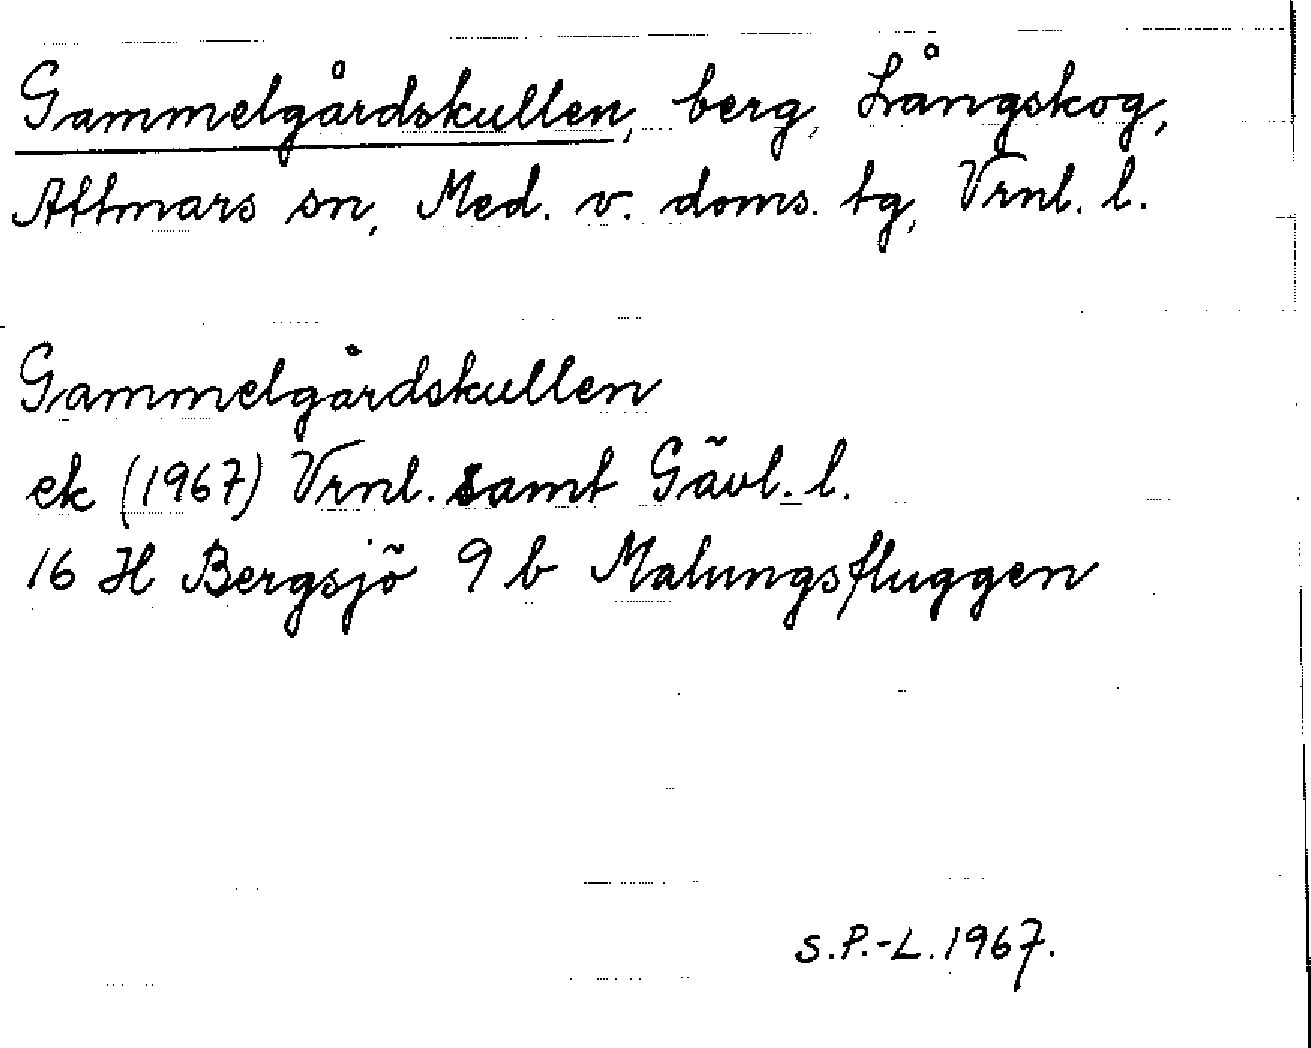 Gammelgårdskullen, berg, Långskog,
Attmars sn, Med. v. doms. tg, Vrnl. l.
Gammelgårdskullen
ek (1967) Vrnl. samt Gävl. l.
16 H Bergsjö 9 b Malungsfluggen
S.P.-L. 1967.